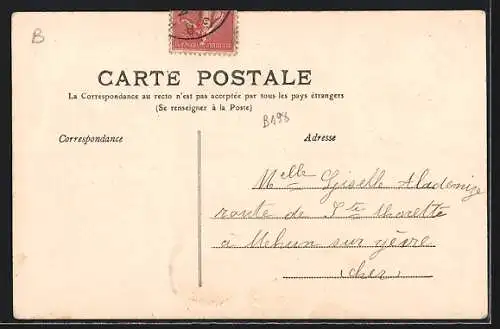 B
CARTE POSTALE
La Correspondance au recto n'est pas acceptée par tous les pays étrangers
(Se renseigner à la Poste)
B198
Correspondance
Adresse
Melle Giselle
route de Ste Thorette
à Mehun sur yèvre
Cher